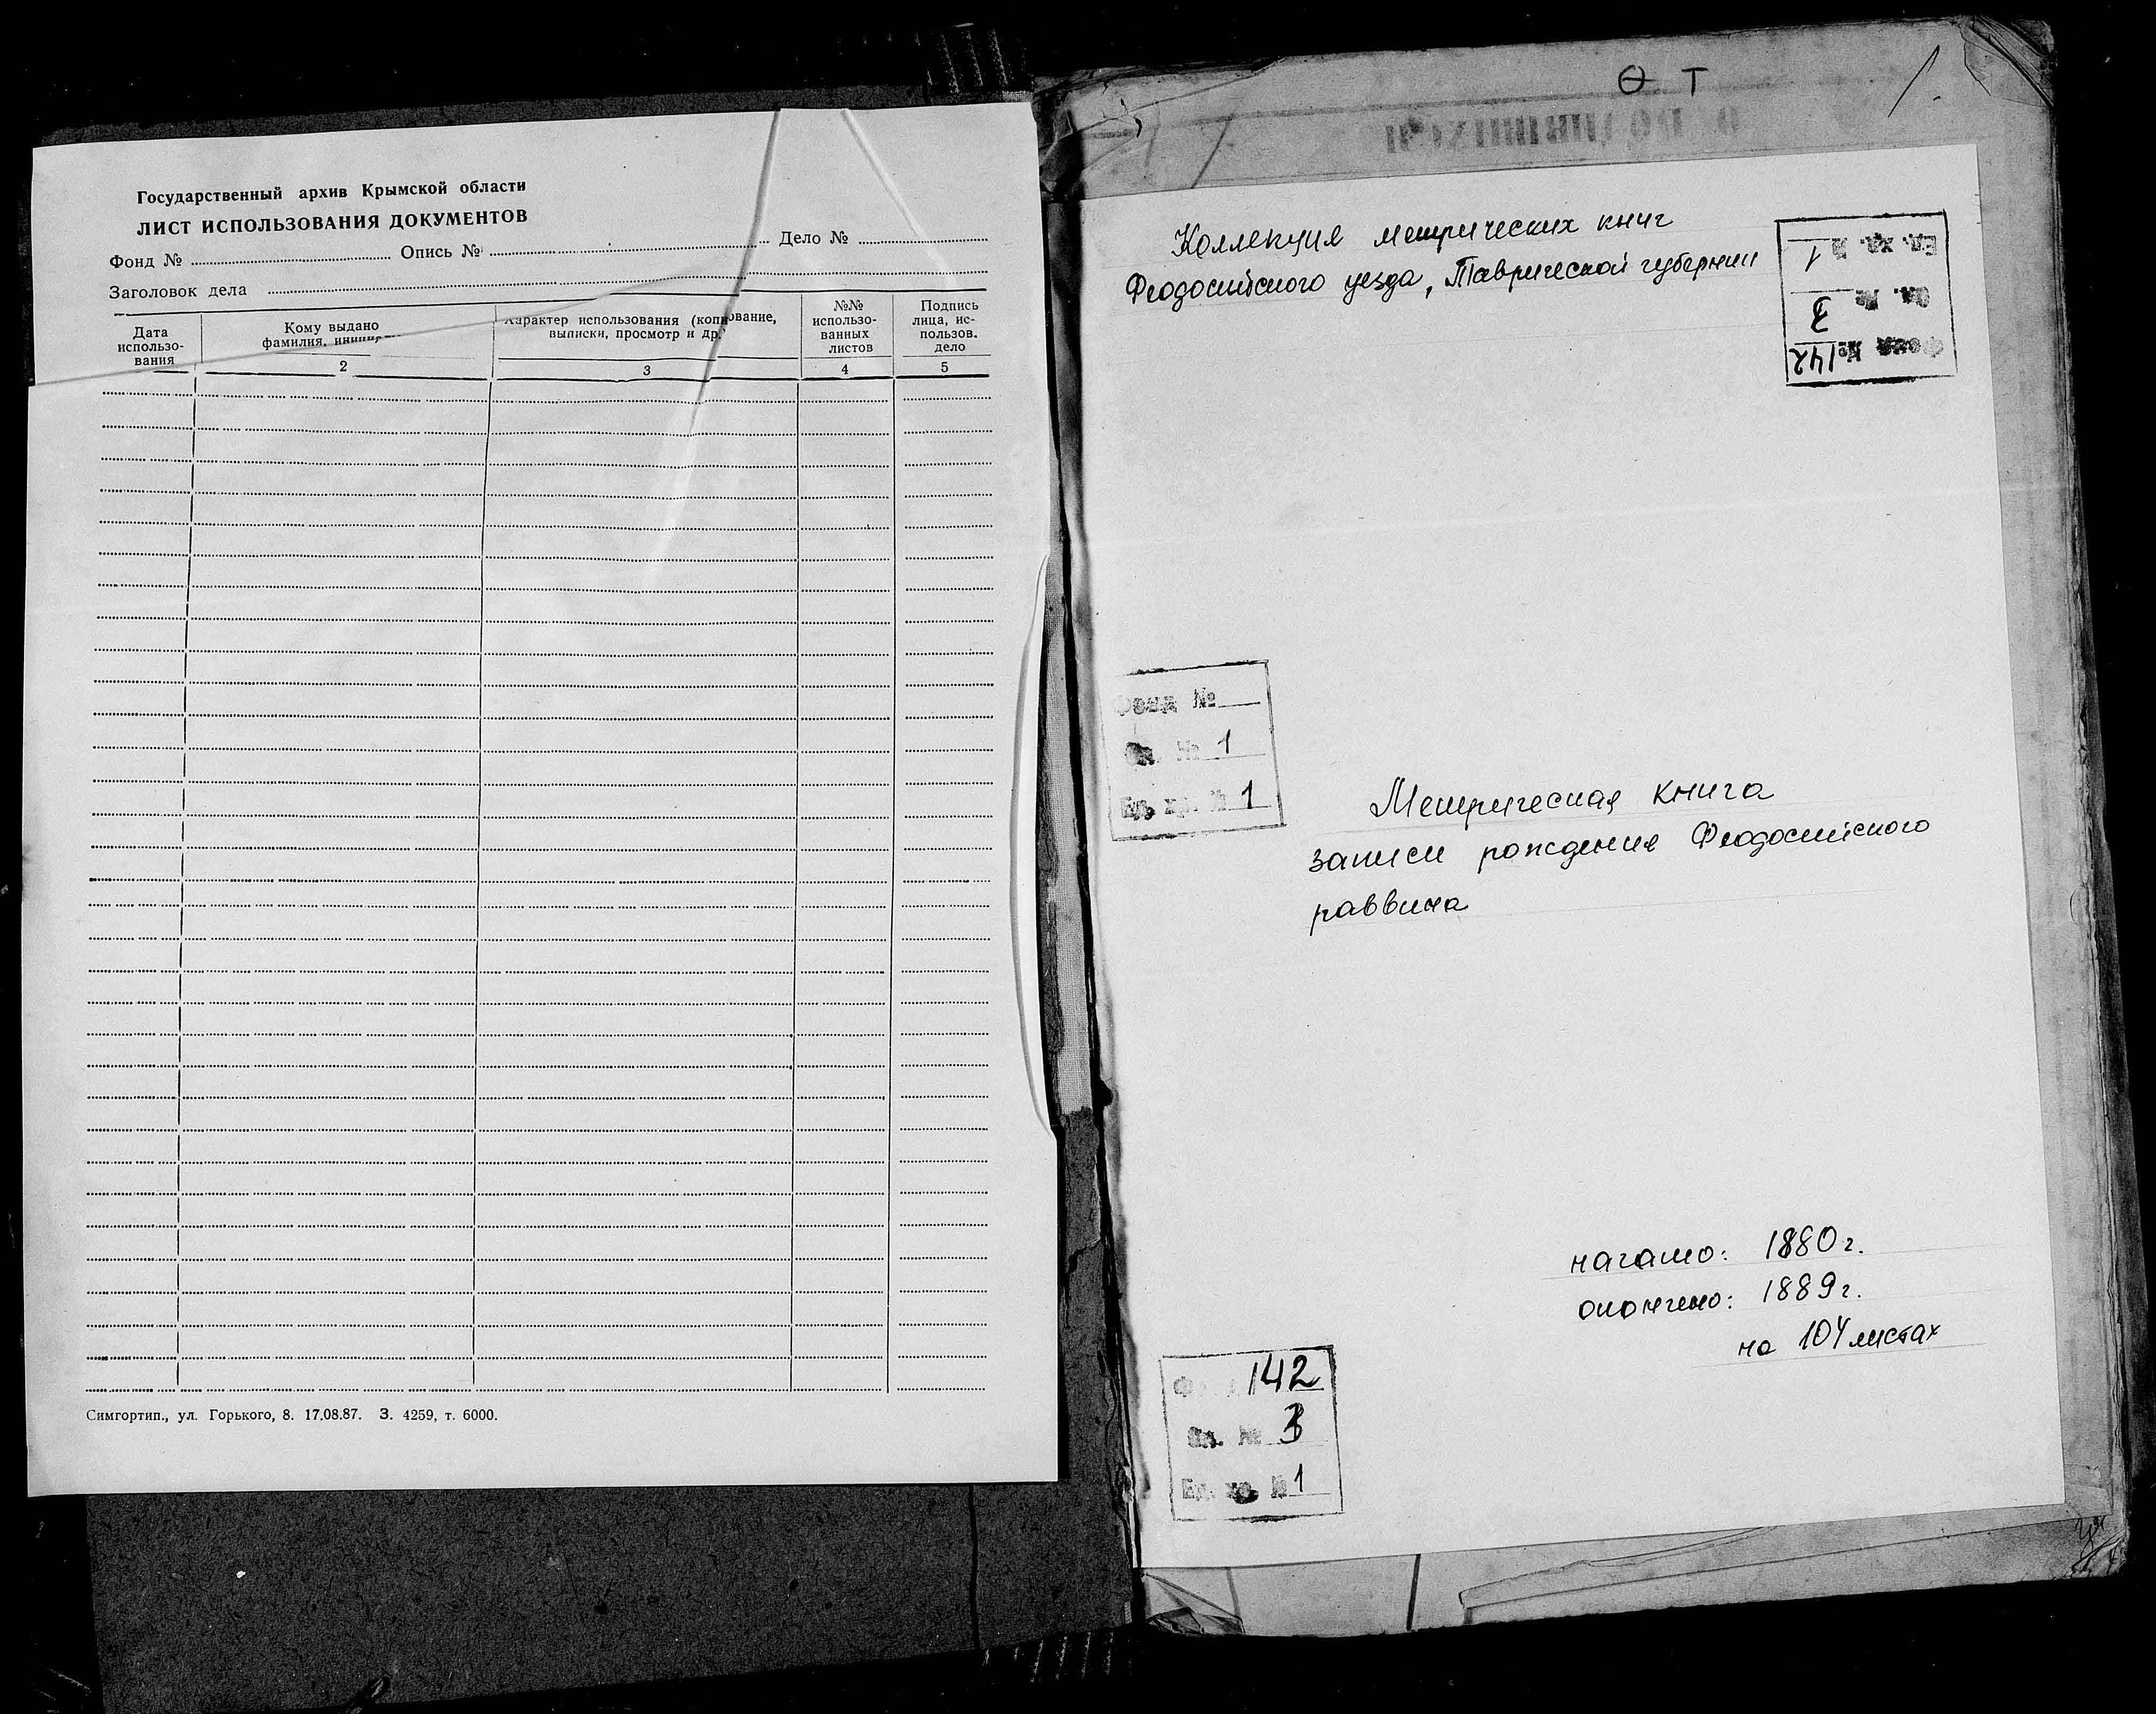 Государственный архив Крымской области
ЛИСТ ИСПОЛЬЗОВАНИЯ ДОКУМЕНТОВ
Фонд № Опись № Дело №
Заголовок дела
Дата использо-вания
Кому выдано фамилия,
Характер использования (копирование, выписки, просмотр и др.
№№ использо-ванных листов
Подпись лица, ис-пользов. дело
2 3 4 5
Симгортип., ул. Горького, 8. 17.08.87. З. 4259, т. 6000.
Ѳ Т
1.
Коллекция метрических книг
Феодосийского уезда, Таврической губернии
Фонд № 142
Оп. № 3
Ед. хр. № 1
Фонд №
Оп. № 1
Ед. хр. № 1
Метрическая книга
записи рождения Феодосийского
раввина
начато: 1880 г.
окончено: 1889 г.
на 104 листах
142
Оп. № 3
Ед. хр. № 1